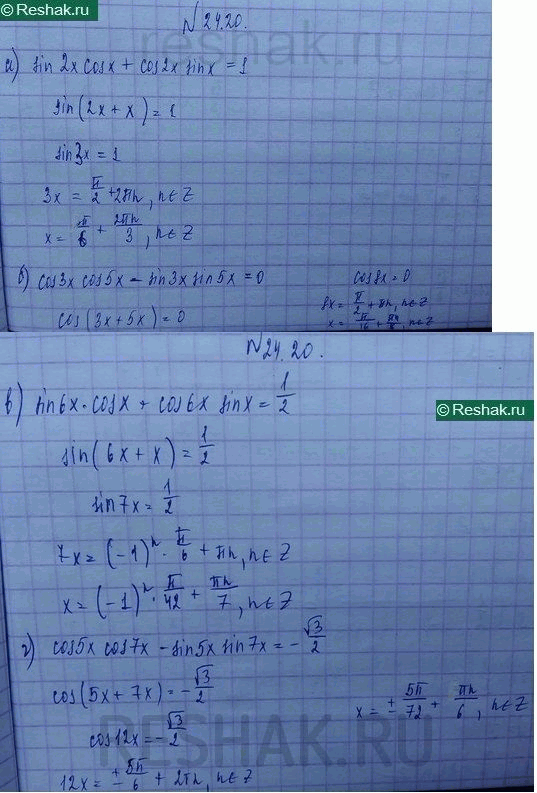 Reshak.ru
№24.20.
reshak.ru
а) sin2x cosx + cos2x sinx = 1
sin(2x + x) = 1
sin3x = 1
3x = π/2 + 2πn, n∈Z
x = π/6 + 2πn/3, n∈Z
б) cos3x cos5x - sin3x sin5x = 0
cos(3x + 5x) = 0
cos8x = 0
8x = π/2 + πn, n∈Z
x = π/16 + πn/8, n∈Z
Reshak.ru
№24.20.
Reshak.ru
в) sin6x · cosx + cos6x sinx = 1/2
sin(6x + x) = 1/2
sin7x = 1/2
7x = (-1)ⁿ · π/6 + πn, n∈Z
x = (-1)ⁿ · π/42 + πn/7, n∈Z
г) cos5x cos7x - sin5x sin7x = -√3/2
cos(5x + 7x) = -√3/2
cos12x = -√3/2
12x = ± 5π/6 + 2πn, n∈Z
x = ± 5π/72 + πn/6, n∈Z
RESHAK.RU